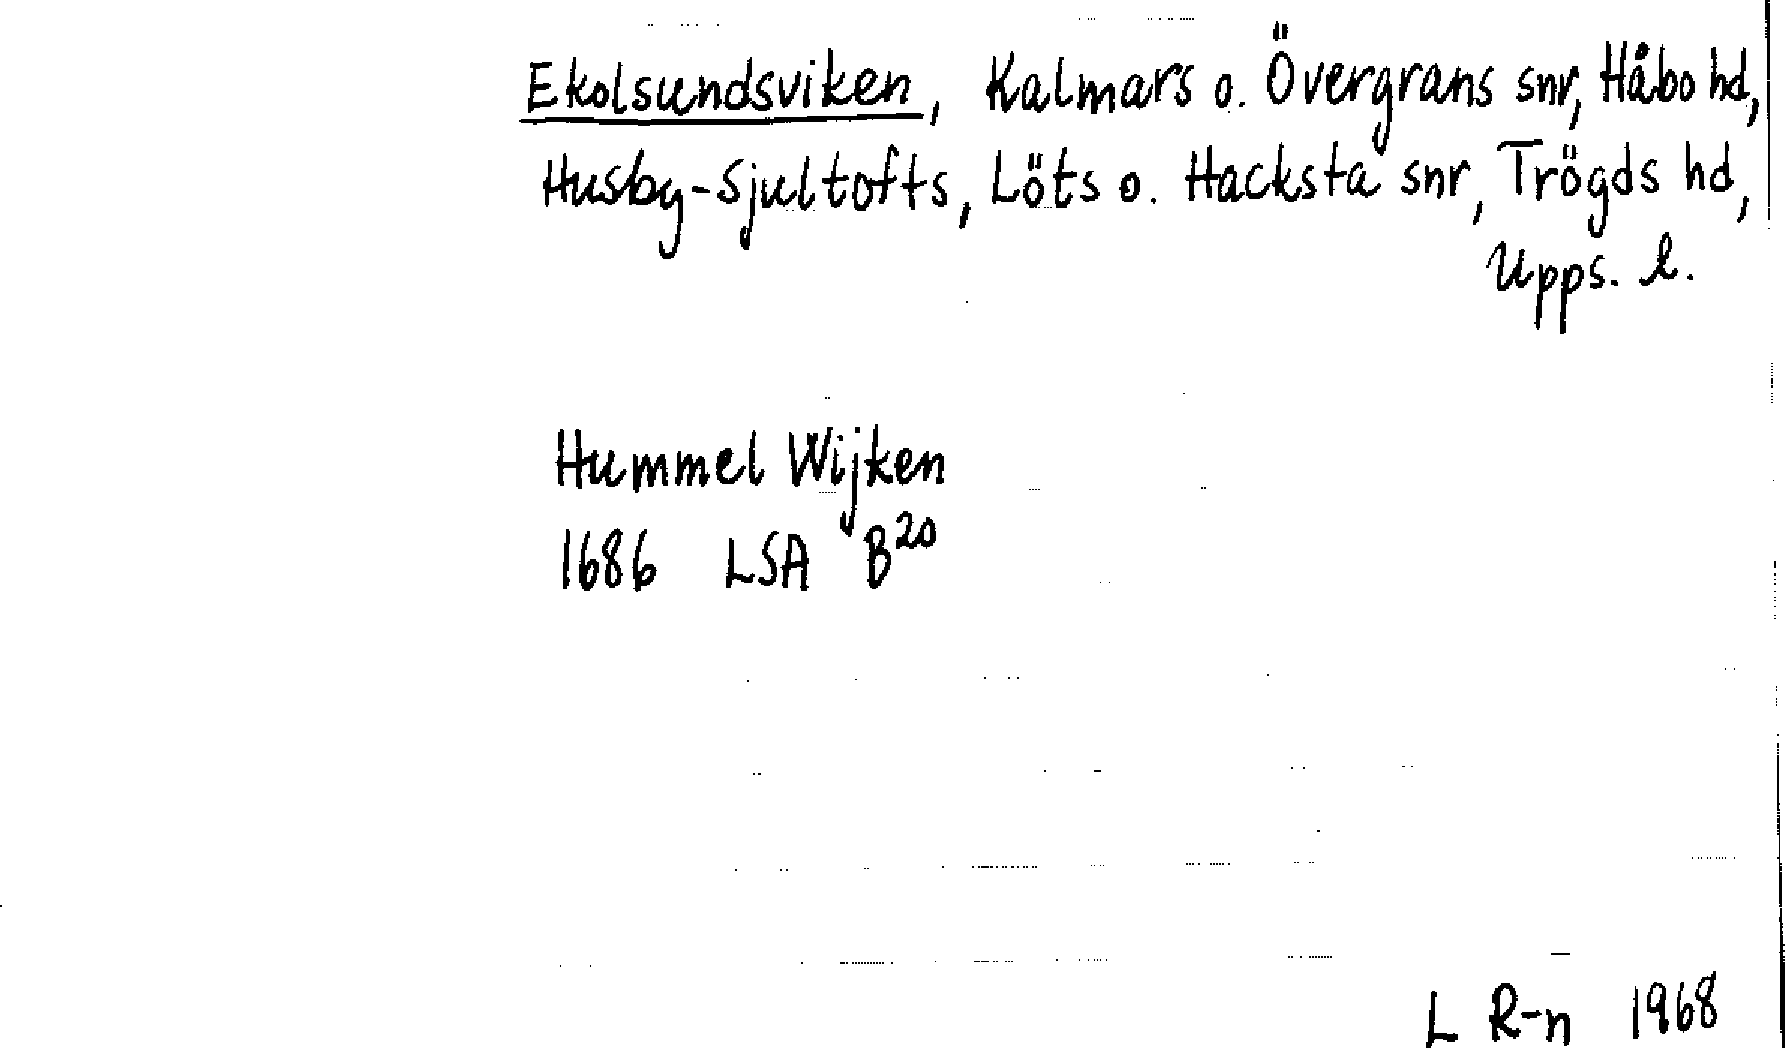 Ekolsundsviken, Kalmars o. Övergrans snr, Håbo hd,
Husby-Sjultofts, Löts o. Hacksta snr, Trögds hd,
Upps. l.
Hummel Wijken
1686 LSA B20
L R-n 1968